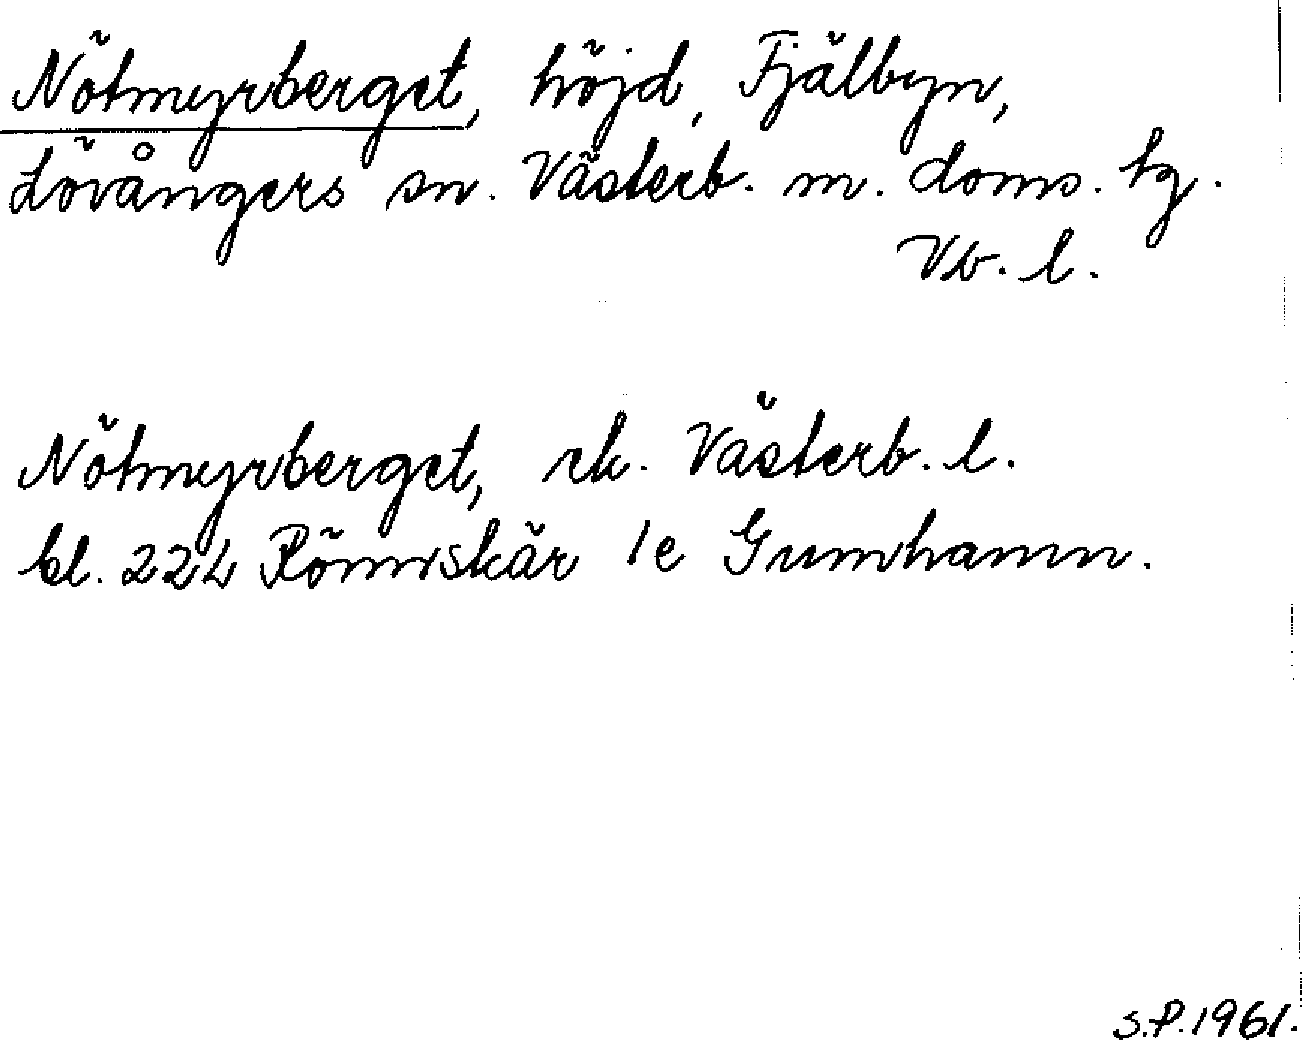 Nötmyrberget, höjd, Fjälbyn,
Lövångers sn. Västerb. n. doms. tg.
Vb. l.
Nötmyrberget, ek. Västerb. l.
bl. 224 Rönnskär 1e Gumhamn.
S.P. 1961.